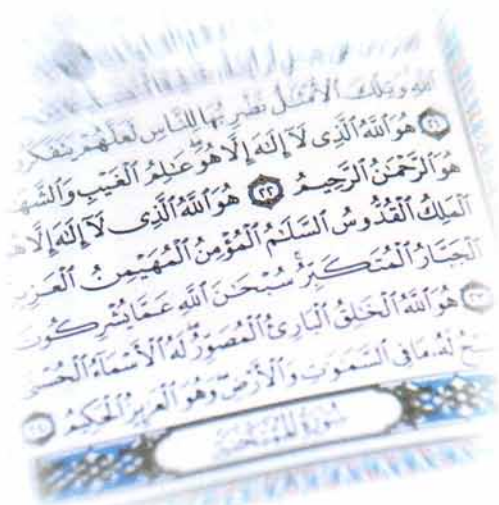 الله وتلك الأمثال نضربها للناس لعلهم يتفكرو
٢١ هو الله الذى لا إله إلا هو عالم الغيب والشه
هو الرحمن الرحيم ٢٢ هو الله الذى لا إله إلا ه
الملك القدوس السلام المؤمن المهيمن العزيز
الجبار المتكبر سبحان الله عما يشركون
٢٣ هو الله الخالق البارئ المصور له الأسماء الحسن
ح له ما فى السموات والأرض وهو العزيز الحكيم ٢٤
سورة الممتحنة